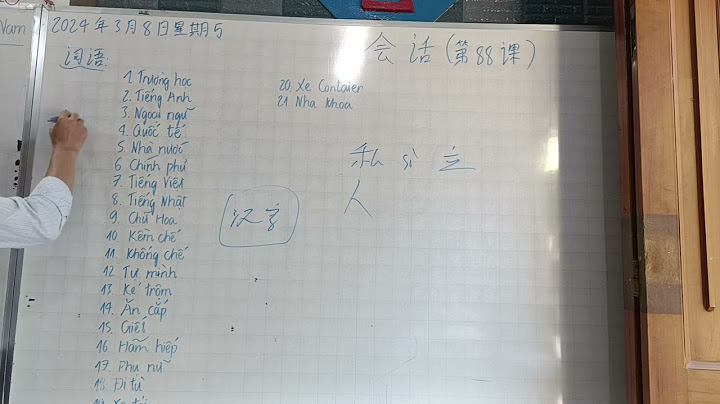 Nam
2024年3月8日星期5
会话(第88课)
词语:
1. Trường học
2. Tiếng Anh
3. Ngoại ngữ
4. Quốc tế
5. Nhà nước
6. Chính phủ
7. Tiếng Việt
8. Tiếng Nhật
9. Chữ Hoa
10. Kềm chế
11. Khống chế
12. Tự mình
13. Kẻ trộm
14. Ăn cắp
15. Giết
16. Hãm hiếp
17. Phụ nữ
18. Đi tù
20. Xe Container
21. Nha khoa
私 sī 立
人
汉字